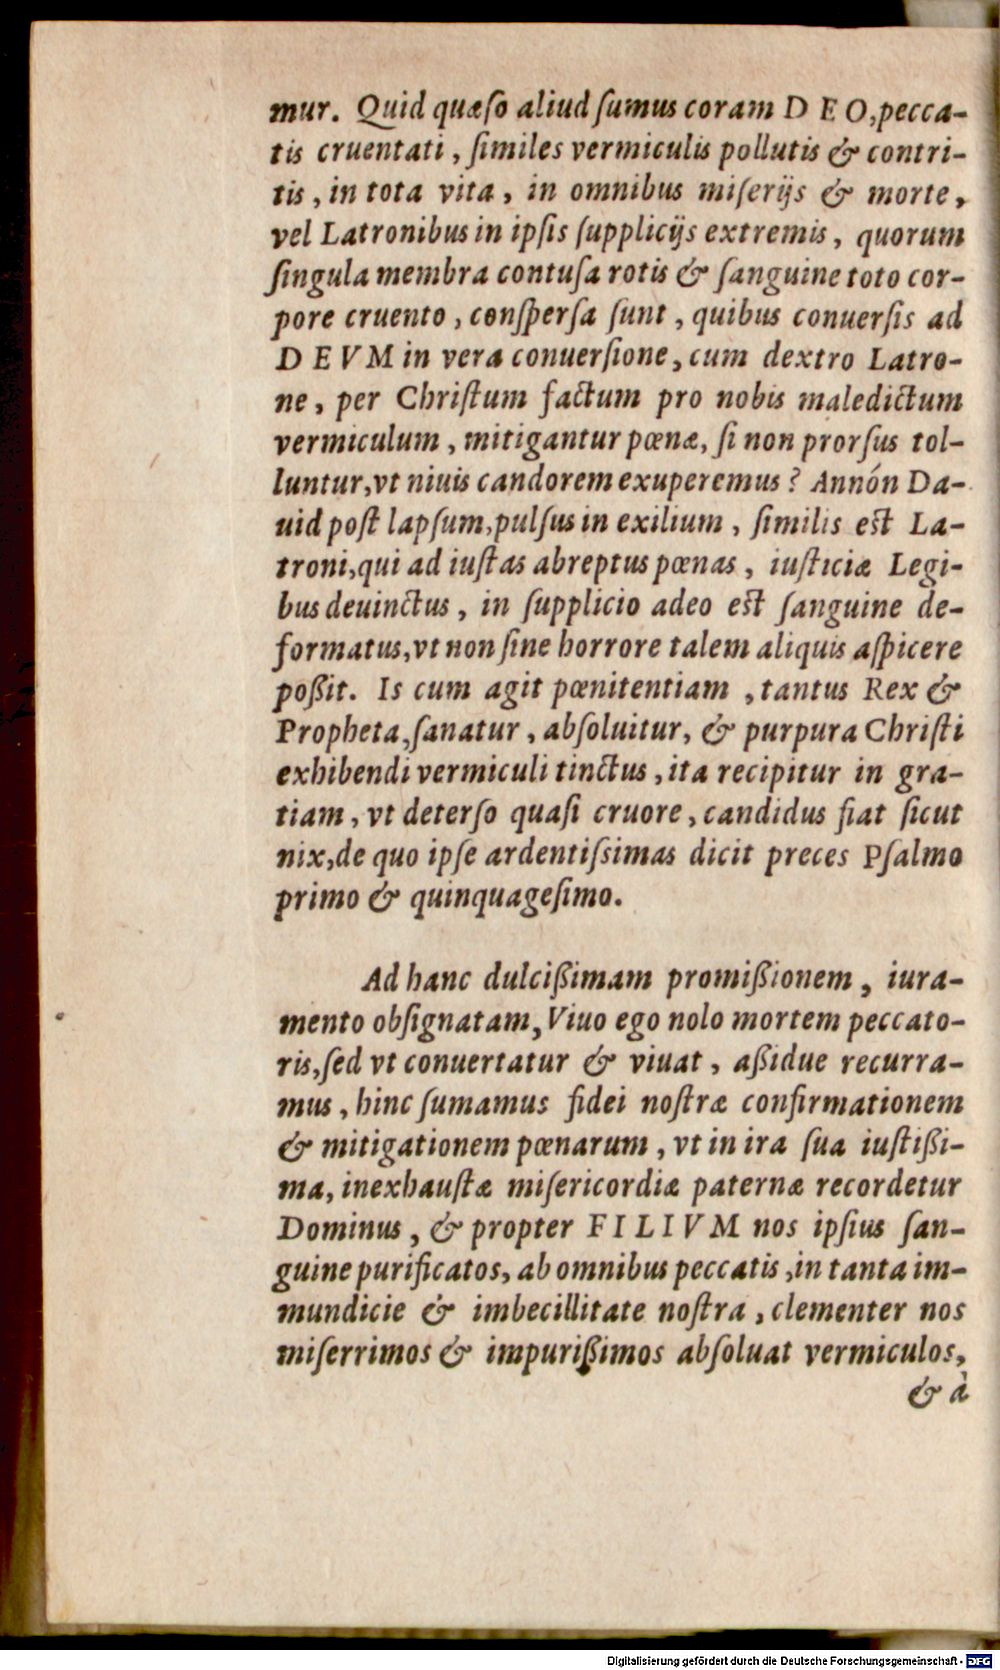 mur. Quid quæſo aliud ſumus coram D E O,pecca-
tis cruentati, ſimiles vermiculis pollutis & contri-
tis, in tota vita, in omnibus miſerijs & morte,
vel Latronibus in ipſis ſupplicijs extremis, quorum
ſingula membra contuſa rotis & ſanguine toto cor-
pore cruento, conſperſa ſunt, quibus conuerſis ad
D E V M in vera conuerſione, cum dextro Latro-
ne, per Chriſtum factum pro nobis maledictum
vermiculum, mitigantur pœnæ, ſi non prorſus tol-
luntur,vt niuis candorem exuperemus? Annón Da-
uid poſt lapſum,pulſus in exilium, ſimilis eſt La-
troni,qui ad iuſtas abreptus pœnas, iuſticiæ Legi-
bus deuinctus, in ſupplicio adeo eſt ſanguine de-
formatus,vt non ſine horrore talem aliquis aſpicere
poßit. Is cum agit pœnitentiam, tantus Rex &
Propheta,ſanatur, abſoluitur, & purpura Chriſti
exhibendi vermiculi tinctus, ita recipitur in gra-
tiam, vt deterſo quaſi cruore, candidus fiat ſicut
nix,de quo ipſe ardentiſsimas dicit preces Pſalmo
primo & quinquageſimo.
Ad hanc dulcißimam promißionem, iura-
mento obſignatam, Viuo ego nolo mortem peccato-
ris,ſed vt conuertatur & viuat, aßidue recurra-
mus, hinc ſumamus fidei noſtræ confirmationem
& mitigationem pœnarum, vt in ira ſua iuſtißi-
ma, inexhauſtæ miſericordiæ paternæ recordetur
Dominus, & propter F I L I V M nos ipſius ſan-
guine purificatos, ab omnibus peccatis, in tanta im-
mundicie & imbecillitate noſtra, clementer nos
miſerrimos & impurißimos abſoluat vermiculos,
& à
Digitalisierung gefördert durch die Deutsche Forschungsgemeinschaft - DFG